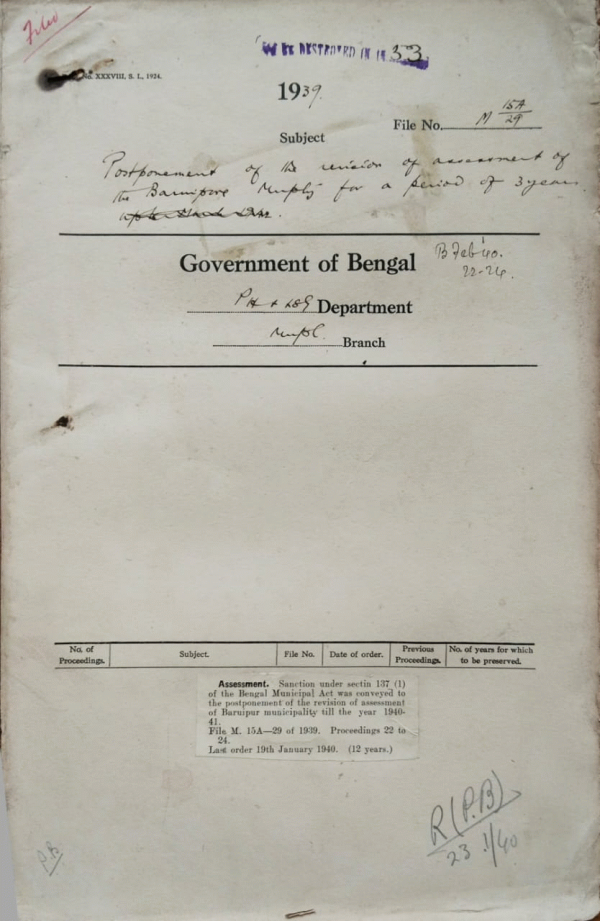 Filed
No. XXXVIII, S. I., 1924.
TO BE DESTROYED IN 19 53
1939.
File No. M 15A/29
Subject
Postponement of the revision of assessment of
the Baruipore Munpty for a period of 3 years.
Government of Bengal
B Feb '40.
22-24.
PH & LSG Department
Munpl. Branch
No. of Proceedings. Subject. File No. Date of order. Previous Proceedings. No. of years for which to be preserved.
Assessment. Sanction under sectin 137 (1)
of the Bengal Municipal Act was conveyed to
the postponement of the revision of assessment
of Baruipur municipality till the year 1940-
41.
File M. 15A—29 of 1939. Proceedings 22 to
24.
Last order 19th January 1940. (12 years.)
R (P.B)
23/1/40
P.B